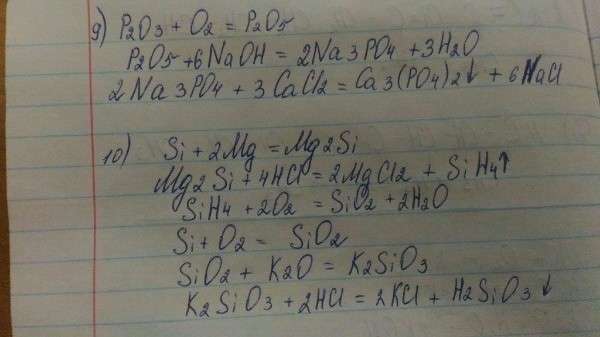 9) P2O3 + O2 = P2O5
P2O5 + 6NaOH = 2Na3PO4 + 3H2O
2Na3PO4 + 3CaCl2 = Ca3(PO4)2↓ + 6NaCl
10) Si + 2Mg = Mg2Si
Mg2Si + 4HCl = 2MgCl2 + SiH4↑
SiH4 + 2O2 = SiO2 + 2H2O
Si + O2 = SiO2
SiO2 + K2O = K2SiO3
K2SiO3 + 2HCl = 2KCl + H2SiO3↓